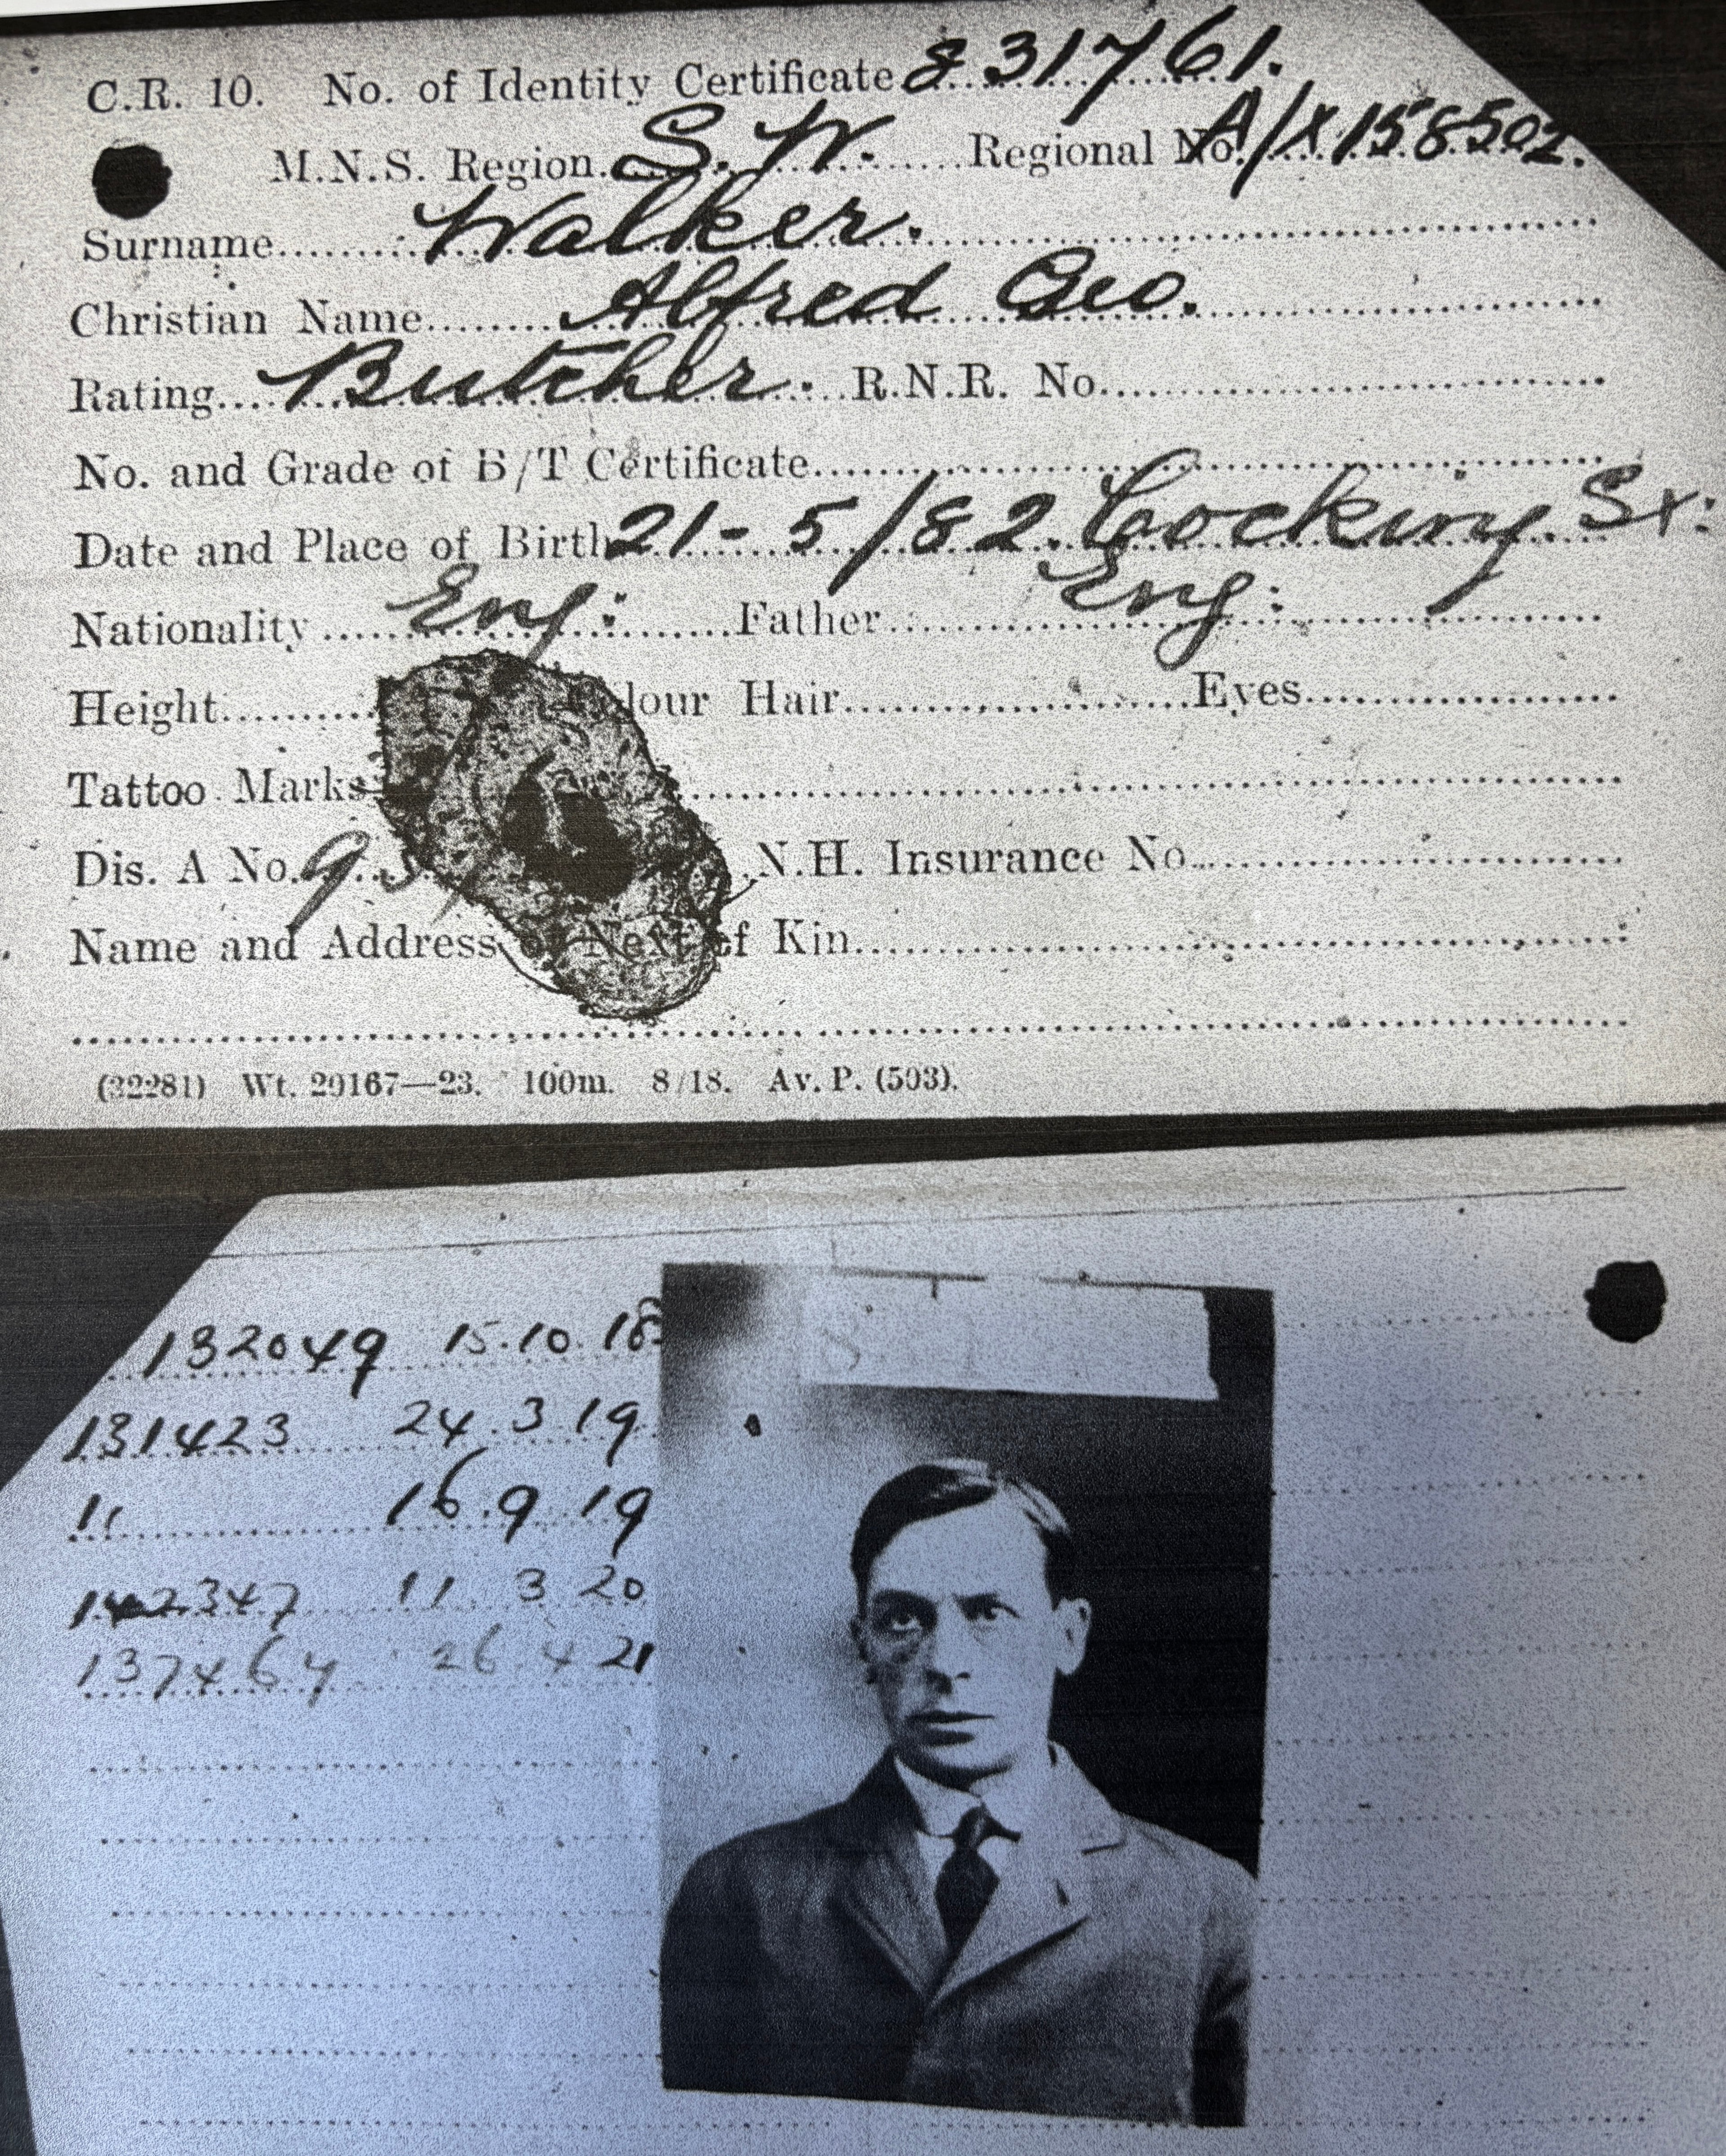 C.R. 10. No. of Identity Certificate 831761.
M.N.S. Region S.W. Regional No. A/X158502.
Surname Walker.
Christian Name Alfred Geo.
Rating Butcher. R.N.R. No.
No. and Grade of B/T Certificate
Date and Place of Birth 21-5/82. Cocking. Sx:
Nationality Eng: Father Eng:
Height Colour Hair Eyes
Tattoo Marks
Dis. A No. N.H. Insurance No.
Name and Address of Next of Kin
(32281) Wt. 29167—23. 100m. 8/18. Av. P. (503).
132049 15.10.18
131423 24.3.19
11 16.9.19
142347 11.3.20
137464 26.4.21